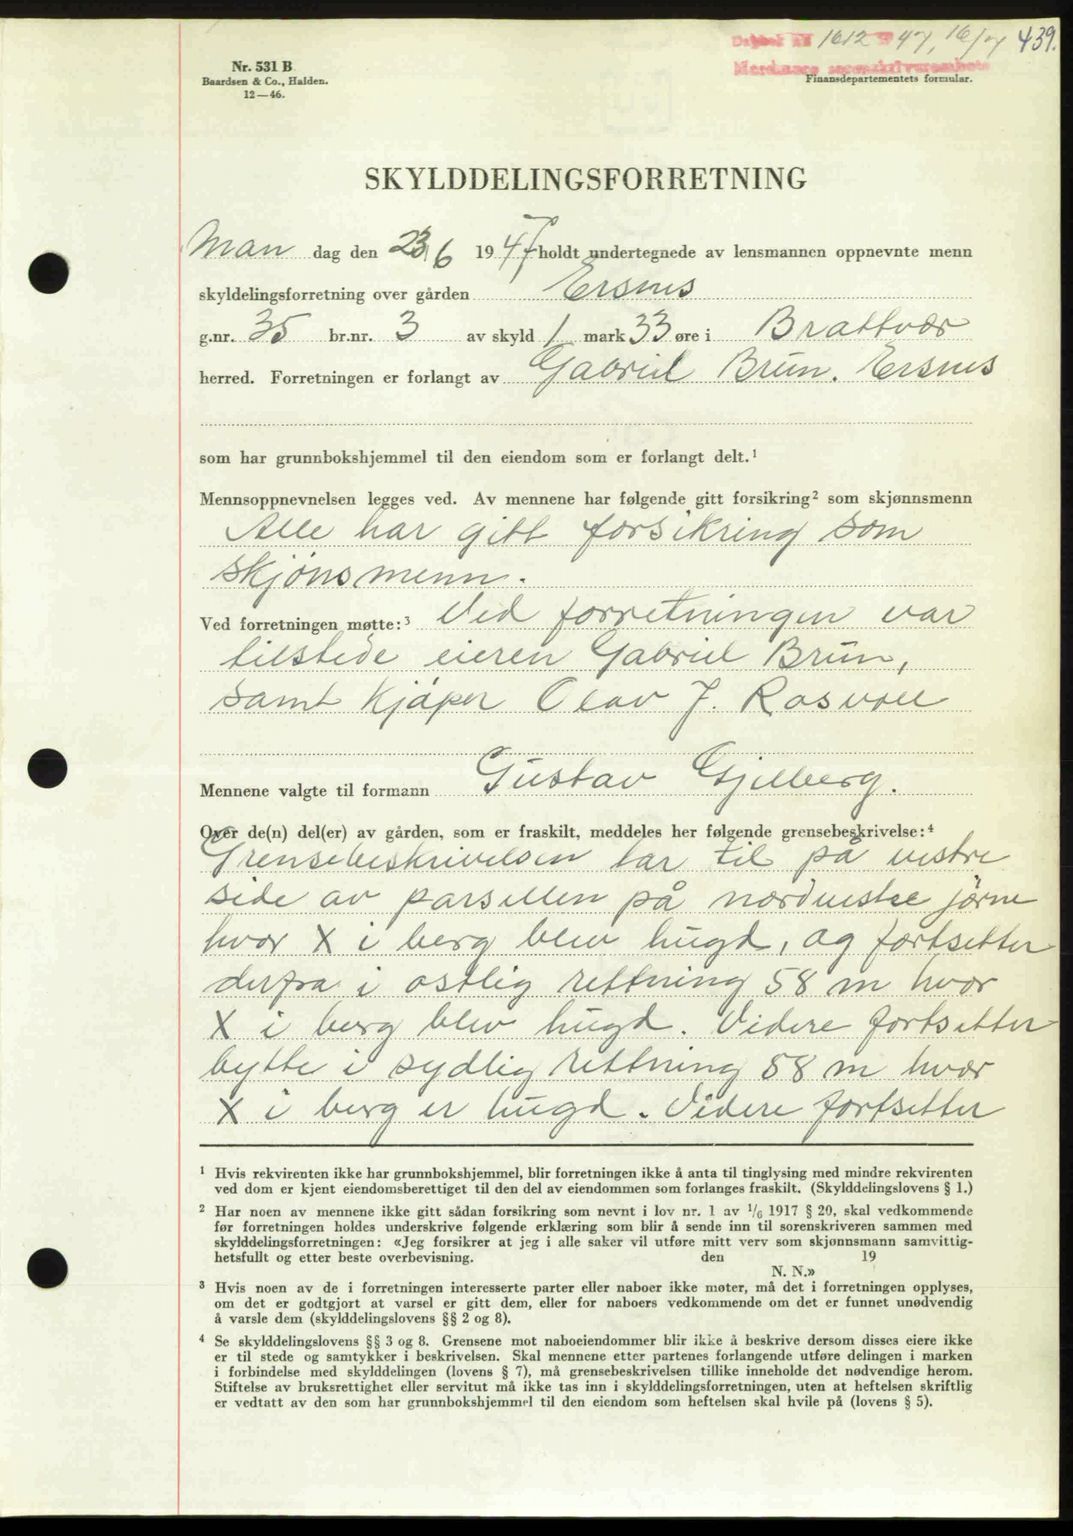 Dagbok nr. 1612 19 47, 16/7 439.
Nordmøre sorenskriverembete
Nr. 531 B
Baardsen & Co., Halden.
12—46.
Finansdepartementets formular.
SKYLDDELINGSFORRETNING
Man dag den 23/6 1947 holdt undertegnede av lensmannen oppnevnte menn
skyldelingsforretning over gården Ersnes
g.nr. 35 br.nr. 3 av skyld 1 mark 33 øre i Brattvær
herred. Forretningen er forlangt av Gabriel Brun. Ersnes
som har grunnbokshjemmel til den eiendom som er forlangt delt.¹
Mennsoppnevnelsen legges ved. Av mennene har følgende gitt forsikring² som skjønnsmenn
Alle har gitt forsikring som
skjönsmenn.
Ved forretningen møtte:³ Ved forretningen var
tilstede eieren Gabriel Brun,
samt kjöper Olav J. Rosvoll
Mennene valgte til formann Gustav Gjelberg.
Over de(n) del(er) av gården, som er fraskilt, meddeles her følgende grensebeskrivelse:⁴
Grensebeskrivelsen tar til på vestre
side av parsellen på nordvestre jörne
hvor X i berg blev hugd, og fortsetter
derfra i ostlig rettning 58 m hvor
X i berg blev hugd. Videre fortsetter
bytte i sydlig rettning 58 m hvor
X i berg er hugd. Videre fortsetter
¹ Hvis rekvirenten ikke har grunnbokshjemmel, blir forretningen ikke å anta til tinglysing med mindre rekvirenten
ved dom er kjent eiendomsberettiget til den del av eiendommen som forlanges fraskilt. (Skylddelingslovens § 1.)
² Har noen av mennene ikke gitt sådan forsikring som nevnt i lov nr. 1 av 1/6 1917 § 20, skal vedkommende
før forretningen holdes underskrive følgende erklæring som blir å sende inn til sorenskriveren sammen med
skylddelingsforretningen: «Jeg forsikrer at jeg i alle saker vil utføre mitt verv som skjønnsmann samvittig-
hetsfullt og etter beste overbevisning. den 19
N. N.»
³ Hvis noen av de i forretningen interesserte parter eller naboer ikke møter, må det i forretningen opplyses,
om det er godtgjort at varsel er gitt dem, eller for naboers vedkommende om det er funnet unødvendig
å varsle dem (skylddelingslovens §§ 2 og 8).
⁴ Se skylddelingslovens §§ 3 og 8. Grensene mot naboeiendommer blir ikke å beskrive dersom disses eiere ikke
er til stede og samtykker i beskrivelsen. Skal mennene etter partenes forlangende utføre delingen i marken
i forbindelse med skylddelingen (lovens § 7), må grensebeskrivelsen tillike inneholde det nødvendige herom.
Stiftelse av bruksrettighet eller servitut må ikke tas inn i skylddelingsforretningen, uten at heftelsen skriftlig
er vedtatt av den som har grunnbokshjemmel til den eiendom som heftelsen skal hvile på (lovens § 5).